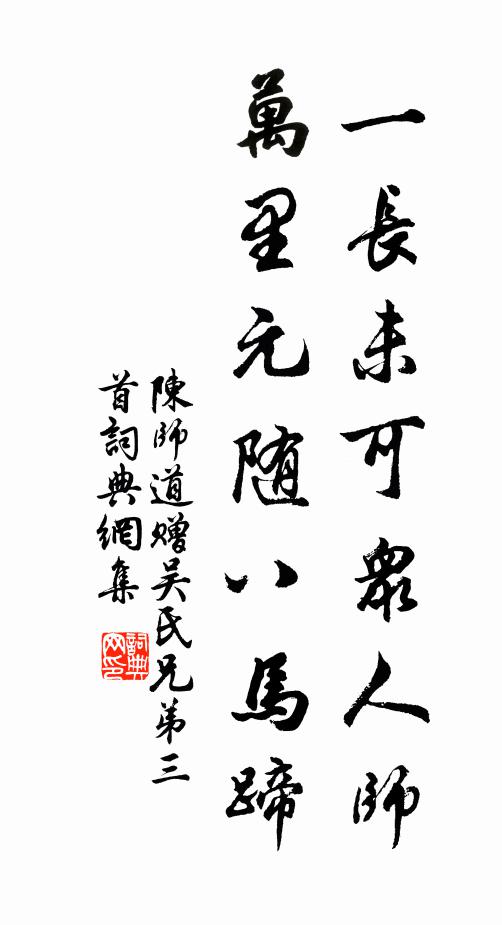 一長未可衆人師
萬里元随八馬蹄
陳師道贈吴氏兄弟三
首詞典網集
詞典
网印